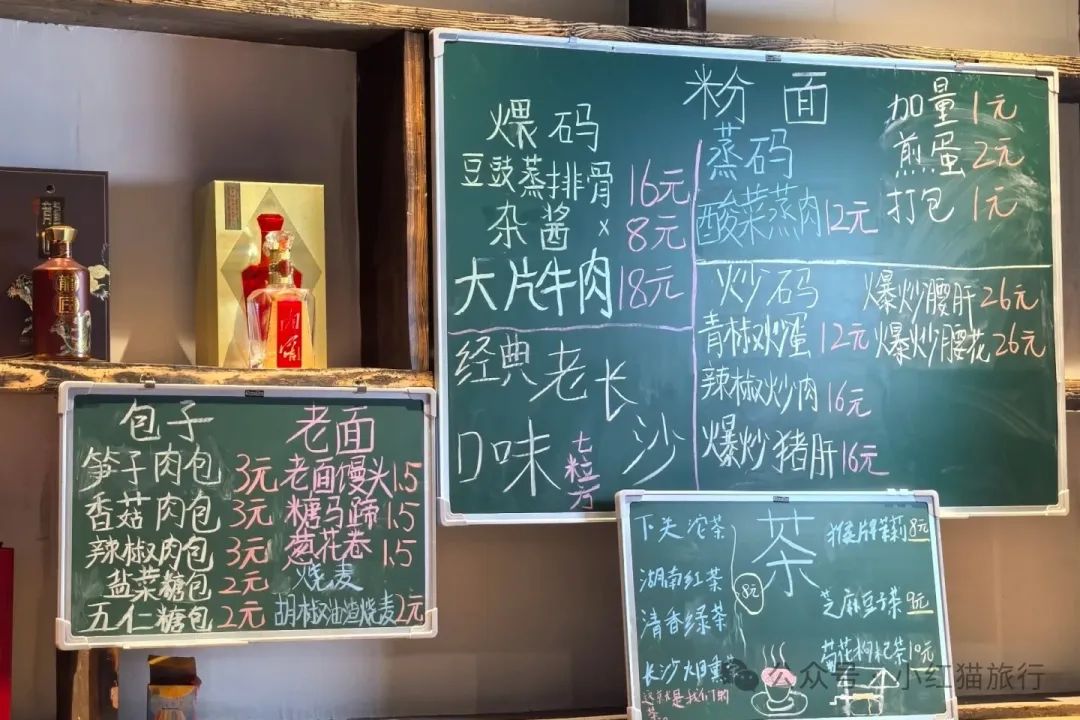 粉面
煨码
豆豉蒸排骨 16元
杂酱 8元
大片牛肉 18元
蒸码
酸菜蒸肉 12元
加量 1元
煎蛋 2元
打包 1元
炒码
青椒炒蛋 12元
辣椒炒肉 16元
爆炒猪肝 16元
爆炒腰肝 26元
爆炒腰花 26元
经典老长沙
口味
包子
笋子肉包 3元
香菇肉包 3元
辣椒肉包 3元
盐菜糖包 2元
五仁糖包 2元
老面
老面馒头 1.5
糖马蹄 1.5
葱花卷 1.5
烧麦
胡椒油渣烧麦 2元
茶
下关沱茶
湖南红茶
清香绿茶
8元
长沙大口熏茶
猴牌茉莉 8元
芝麻豆子茶 9元
菊花枸杞茶 10元
公众号·小红猫旅行